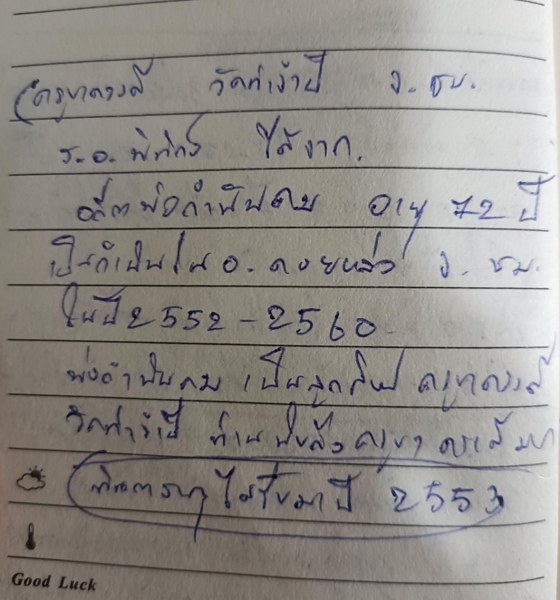 (ครูบาดวงดี วัดท่าจำปี จ. ชม.
ร.อ. พิทักษ์ ได้จาก.
อดีตพ่อกำนันคม อายุ 72 ปี
เป็นกำนันใน อ. ดอยหล่อ จ. ชม.
ในปี 2552 - 2560
พ่อกำนันคม เป็นลูกศิษย์ ครูบาดวงดี
วัดท่าจำปี ท่าน ครูบา ดวงดี มา
ได้ มาปี 2553
Good Luck